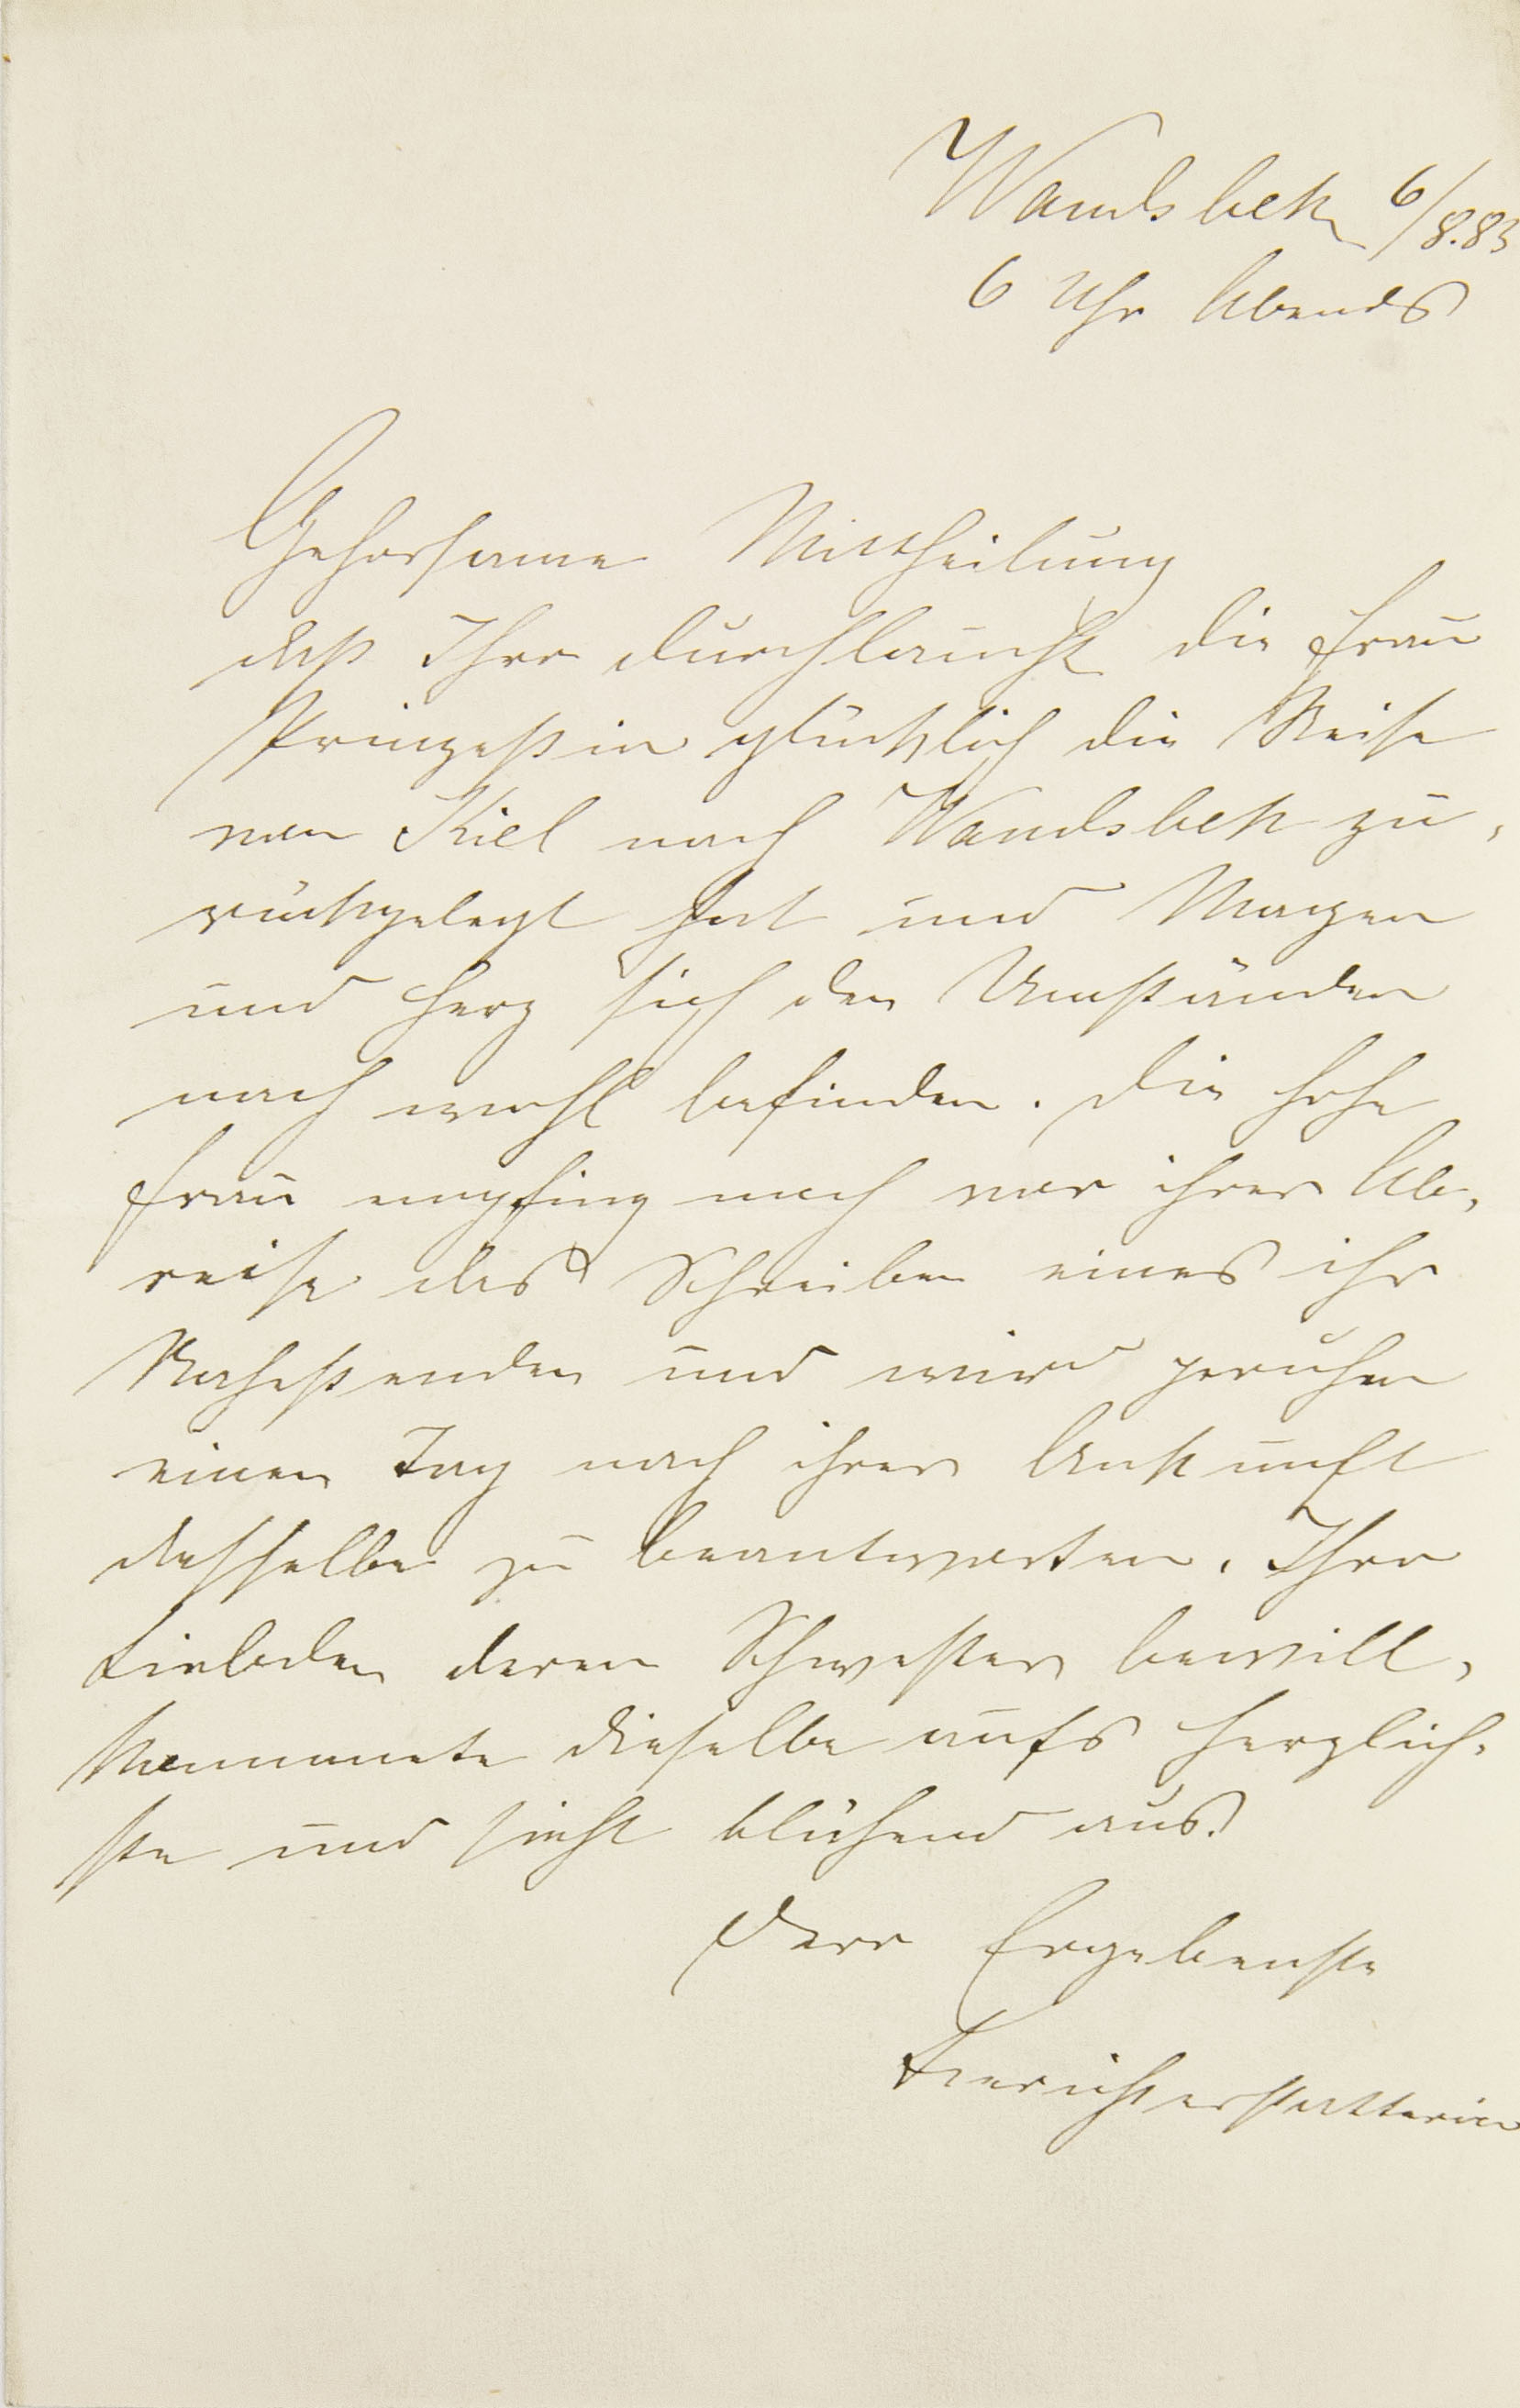 Wandsbek 6/8.83
6 Uhr Abends
Gehorsame Mittheilung
daß Ihre Durchlaucht die Frau
Prinzeßin glücklich die Reise
von Kiel nach Wandsbek zu-
rückgelegt hat und Magen
und Herz sich den Umständen
nach wohl befinden. Die hohe
Frau empfing noch vor ihrer Ab-
reise das Schreiben eines ihr
Nahestenden und wird geruhen
einen Tag nach ihrer Ankunft
dasselbe zu beantworten. Ihre
Liebden deren Schwester bewill-
kommnete dieselbe aufs herzlich-
ste und sieht blühend aus.
Ihre Ergebenste
Berichterstatterin